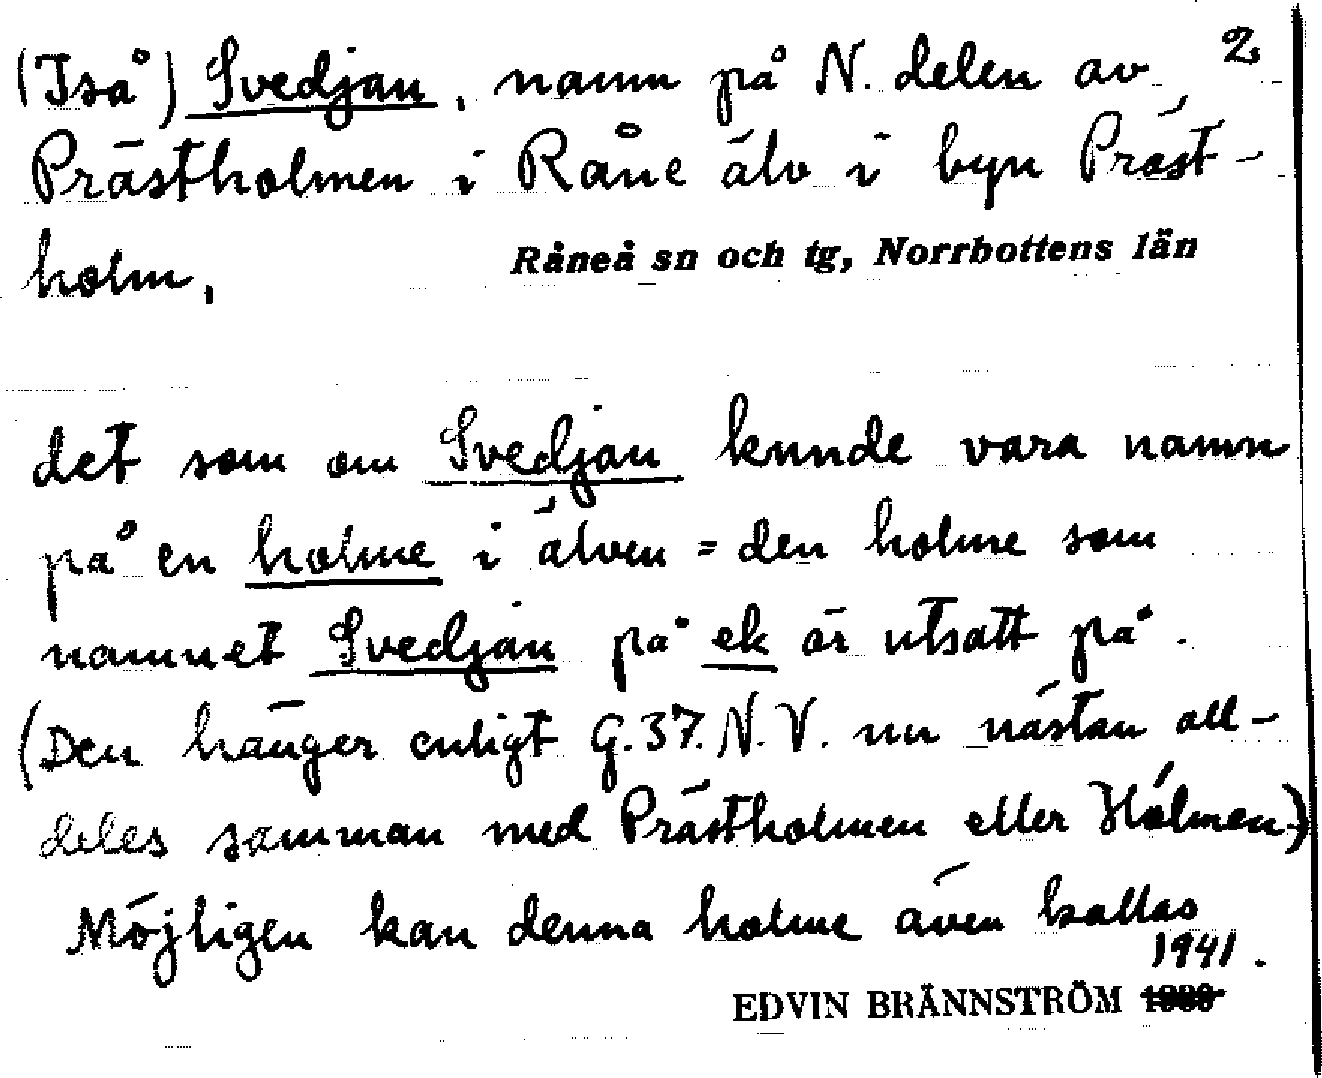 2
(Iså) Svedjan, namn på N. delen av
Prästholmen i Råne älv i byn Präst-
holm,
Råneå sn och tg, Norrbottens län
det som om Svedjan kunde vara namn
på en holme i älven = den holme som
namnet Svedjan på ek är utsatt på.
(Den hänger enligt G.37.N.V. nu nästan all-
deles samman med Prästholmen eller Hólmen.)
Möjligen kan denna holme även kallas
1941.
EDVIN BRÄNNSTRÖM